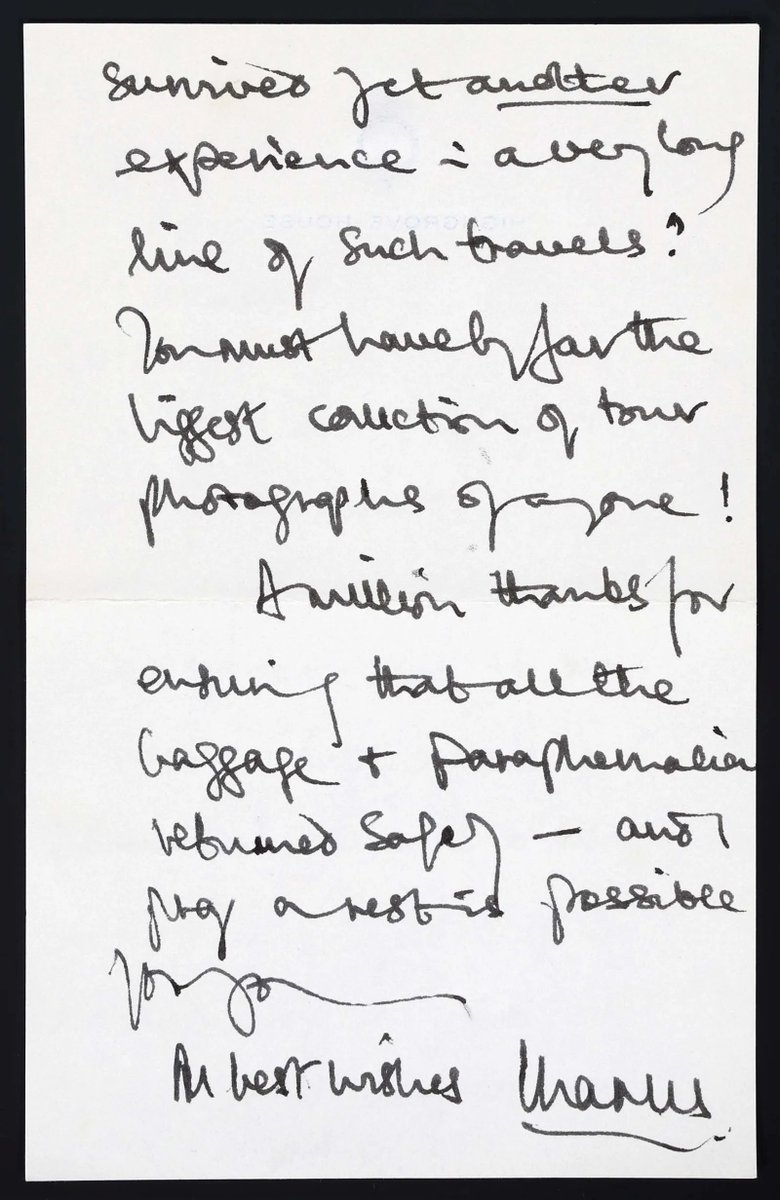 survived yet another
experience in a very long
line of such travels?
You must have by far the
biggest collection of tour
photographs of anyone!
A million thanks for
ensuring that all the
baggage + paraphernalia
returned safely — and I
pray a rest is possible
for you
All best wishes Charles
HIGHGROVE HOUSE